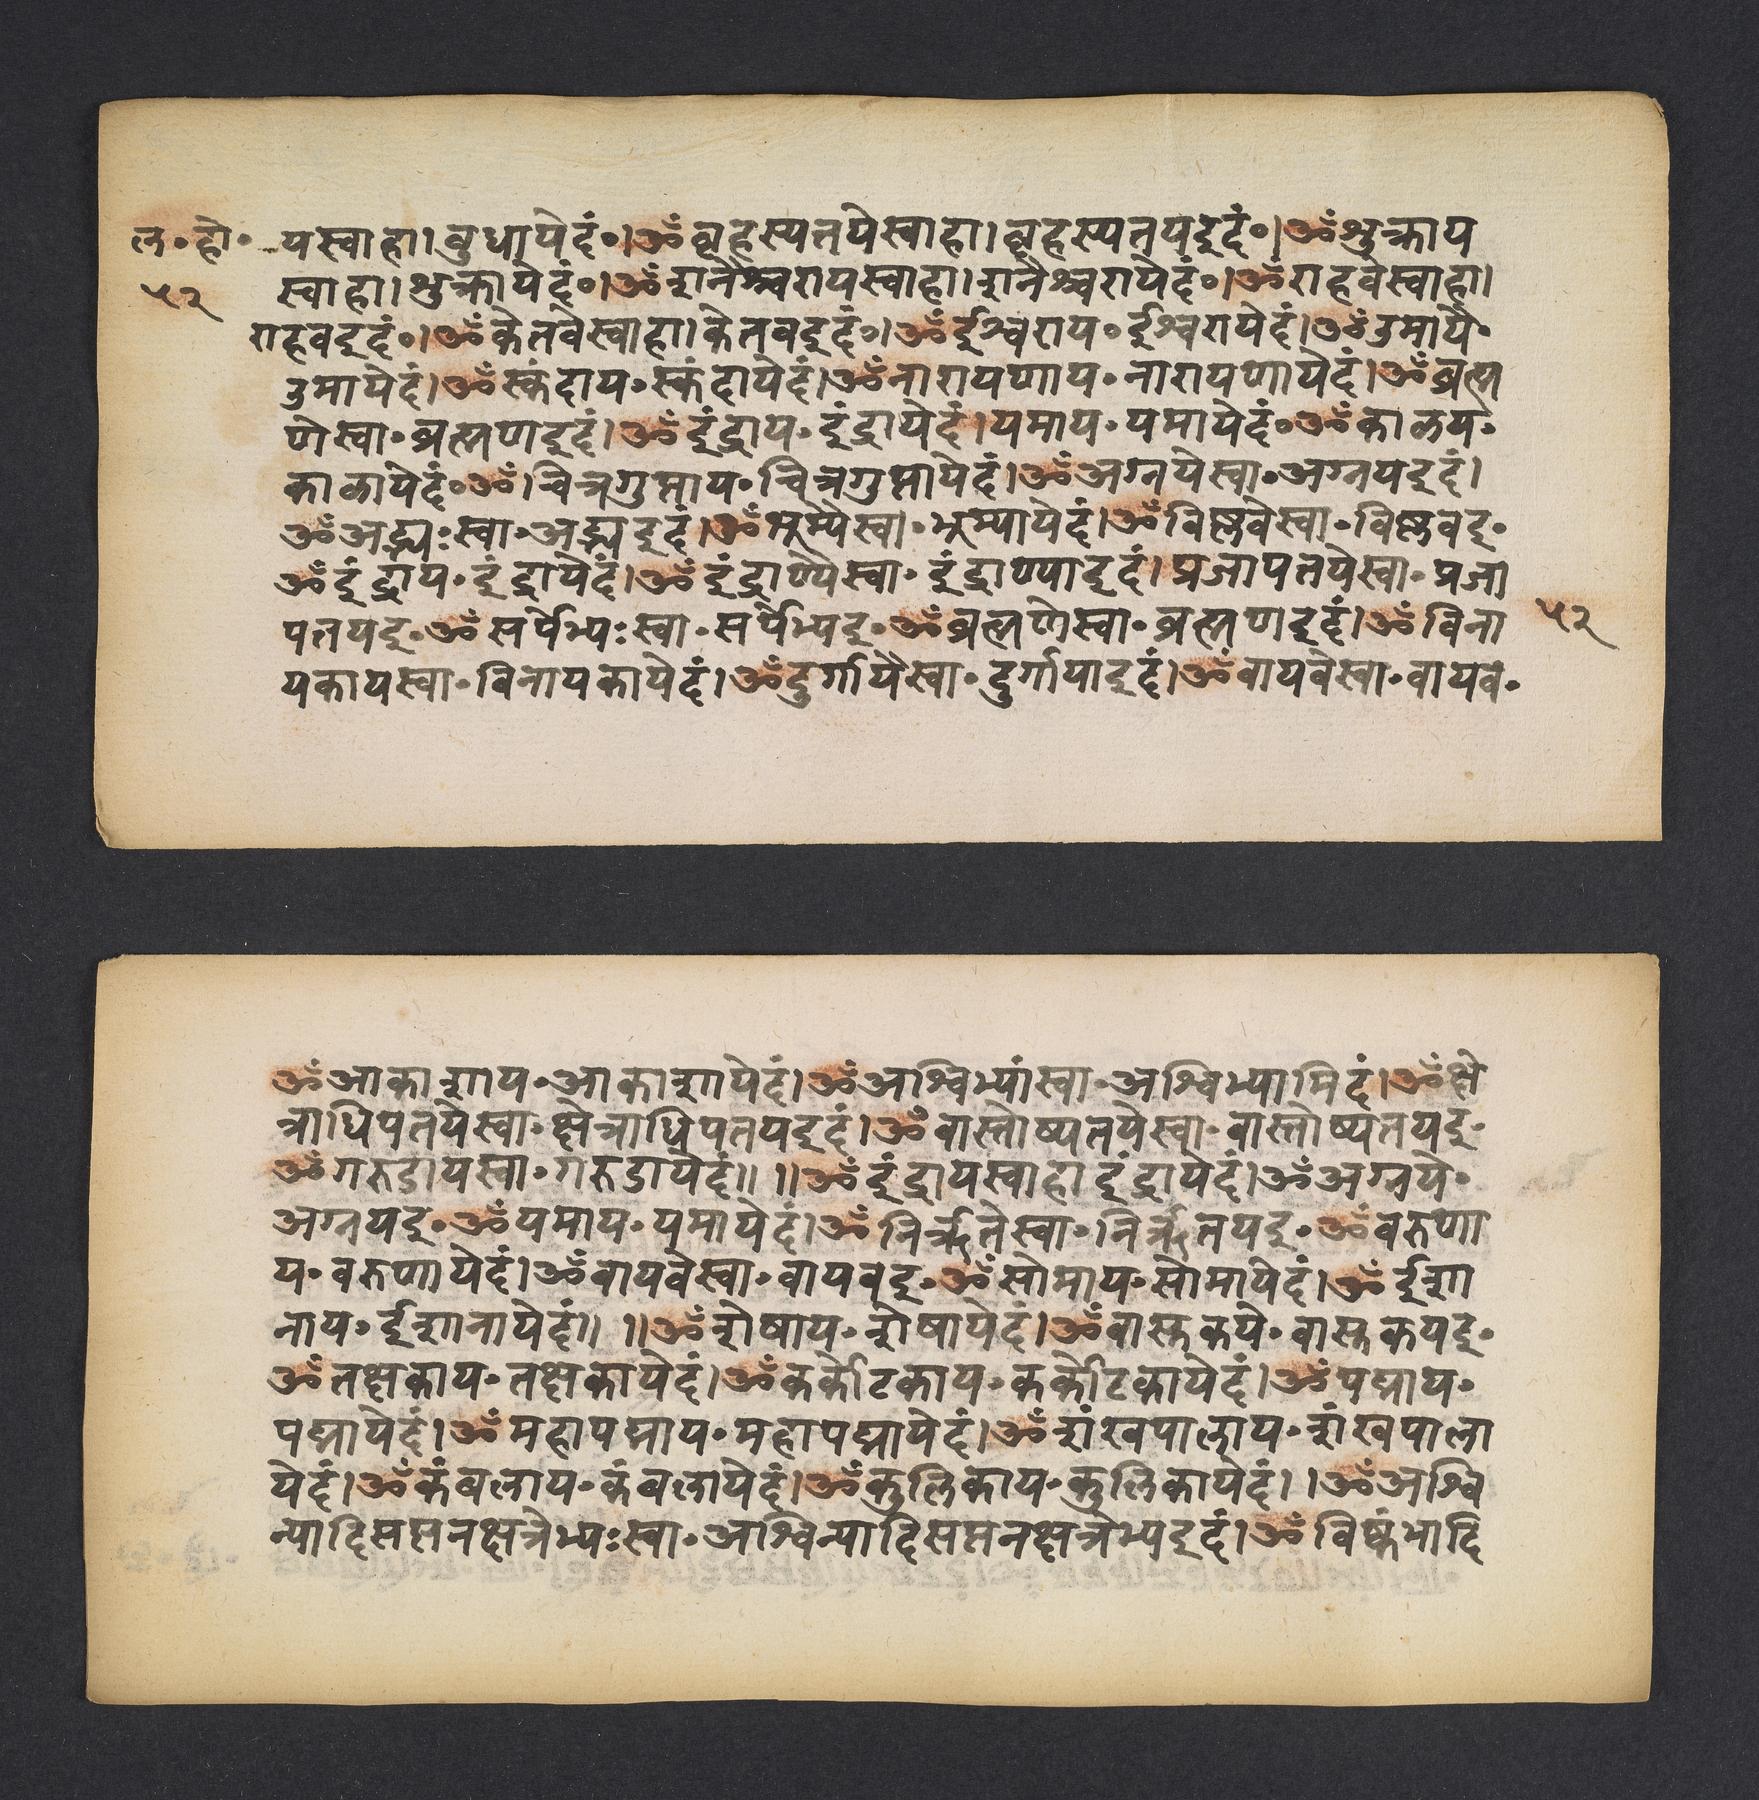 ल॰हो॰ यस्वाहा।बुधायेदं॰।ॐबृहस्पतयेस्वाहा।बृहस्पतयइदं॰।ॐशुक्राय
५२ स्वाहा।शुक्रायेदं॰।ॐशनैश्चरायस्वाहा।शनैश्चरायेदं॰।ॐराहवेस्वाहा।
राहवइदं॰।ॐकेतवेस्वाहा।केतवइदं॰।ॐईश्वराय॰ईश्वरायेदं।ॐउमायै॰
उमायेदं।ॐस्कंदाय॰स्कंदायेदं।ॐनारायणाय॰नारायणायेदं।ॐब्रह्म
णेस्वा॰ब्रह्मणइदं।ॐइंद्राय॰इंद्रायेदं।यमाय॰यमायेदं॰ॐकालय॰
कालायेदं॰ॐ।चित्रगुप्ताय॰चित्रगुप्तायेदं।ॐअग्नयेस्वा॰अग्नयइदं।
ॐअद्भ्यःस्वा॰अद्भ्यइदं।ॐभूम्यैस्वा॰भूम्यायेदं।ॐविष्णवेस्वा॰विष्णवइ॰
ॐइंद्राय॰इंद्रायेदं।ॐइंद्राण्यैस्वा॰इंद्राण्याइदं।प्रजापतयेस्वा॰प्रजा
पतयइ॰ॐसर्पेभ्यःस्वा॰सर्पेभ्यइ॰ॐब्रह्मणेस्वा॰ब्रह्मणइदं।ॐविना ५२
यकायस्वा॰विनायकायेदं।ॐदुर्गायैस्वा॰दुर्गायाइदं।ॐवायवेस्वा॰वायव॰
ॐआकाशाय॰आकाशायेदं।ॐअश्विभ्यांस्वा॰अश्विभ्यामिदं।ॐक्षे
त्राधिपतयेस्वा॰क्षेत्राधिपतयइदं।ॐवास्तोष्पतयेस्वा॰वास्तोष्पतयइ॰
ॐगरुडायस्वा॰गरुडायेदं॥ ॥ॐइंद्रायस्वाहाइंद्रायेदं।ॐअग्नये॰
अग्नयइ॰ॐयमाय॰यमायेदं।ॐनिर्ऋतेस्वा॰निर्ऋतयइ॰ॐवरुणा
य॰वरुणायेदं।ॐवायवेस्वा॰वायवइ॰ॐसोमाय॰सोमायेदं।ॐईशा
नाय॰ईशानायेदं॥ ॥ॐशेषाय॰शेषायेदं।ॐवास्तकये॰वास्तकयइ॰
ॐतक्षकाय॰तक्षकायेदं।ॐकर्कोटकाय॰कर्कोटकायेदं।ॐपद्माय॰
पद्मायेदं।ॐमहापद्माय॰महापद्मायेदं।ॐशंखपालाय॰शंखपाला
येदं।ॐकंबलाय॰कंबलायेदं।ॐकुलिकाय॰कुलिकायेदं। ।ॐअश्वि
न्यादिसप्तनक्षत्रेभ्यःस्वा॰अश्विन्यादिसप्तनक्षत्रेभ्यइदं।ॐविष्कंभादि